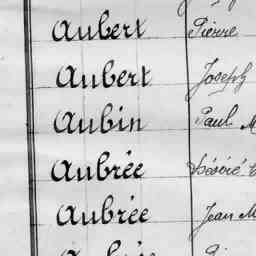 Aubert Pierre
Aubert Joseph
Aubin Paul M
Aubrée Désiré
Aubrée Jean M